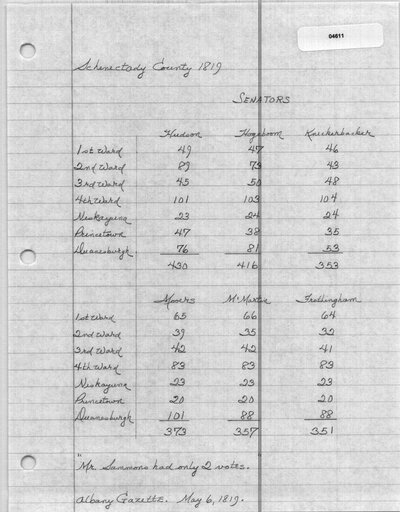 04611
Schenectady County 1819
SENATORS
Hudson Hogeboom Knickerbacker
1st Ward 49 47 46
2nd Ward 89 73 43
3rd Ward 45 50 48
4th Ward 101 103 104
Niskayuna 23 24 24
Princetown 47 38 35
Duanesburgh 76 81 53
430 416 353
Mooers McMartin Frothingham
1st Ward 65 66 64
2nd Ward 39 35 32
3rd Ward 42 42 41
4th Ward 83 83 83
Niskayuna 23 23 23
Princetown 20 20 20
Duanesburgh 101 88 88
373 357 351
"Mr. Sammons had only 2 votes."
Albany Gazette. May 6, 1819.